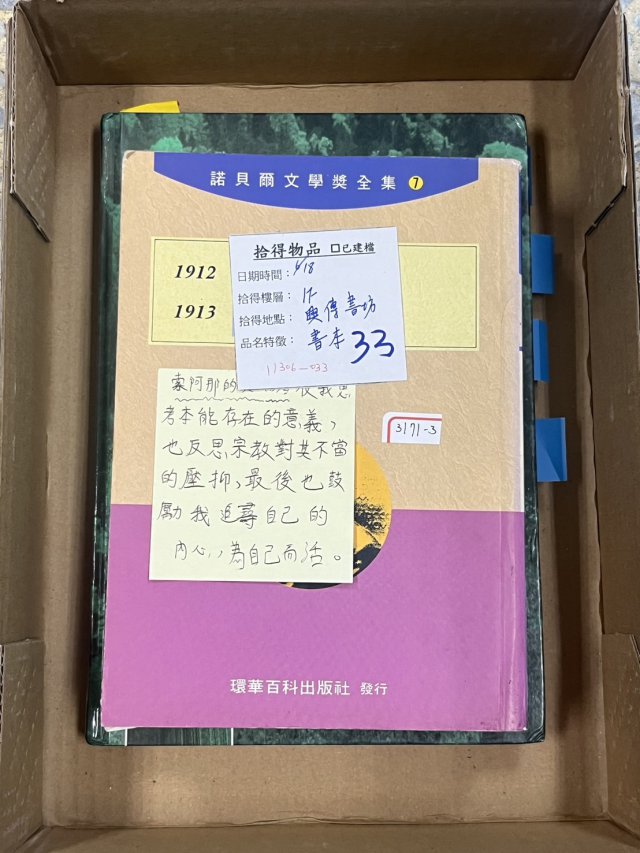 諾貝爾文學獎全集 7
1912
1913
拾得物品 □已建檔
日期時間：6/18
拾得樓層：1F
拾得地點：興傳書坊
品名特徵：書本 33
11306-033
索阿那的
考本能存在的意義，
也反思宗教對其不當
的壓抑，最後也鼓
勵我追尋自己的
內心，為自己而活。
3171-3
環華百科出版社 發行